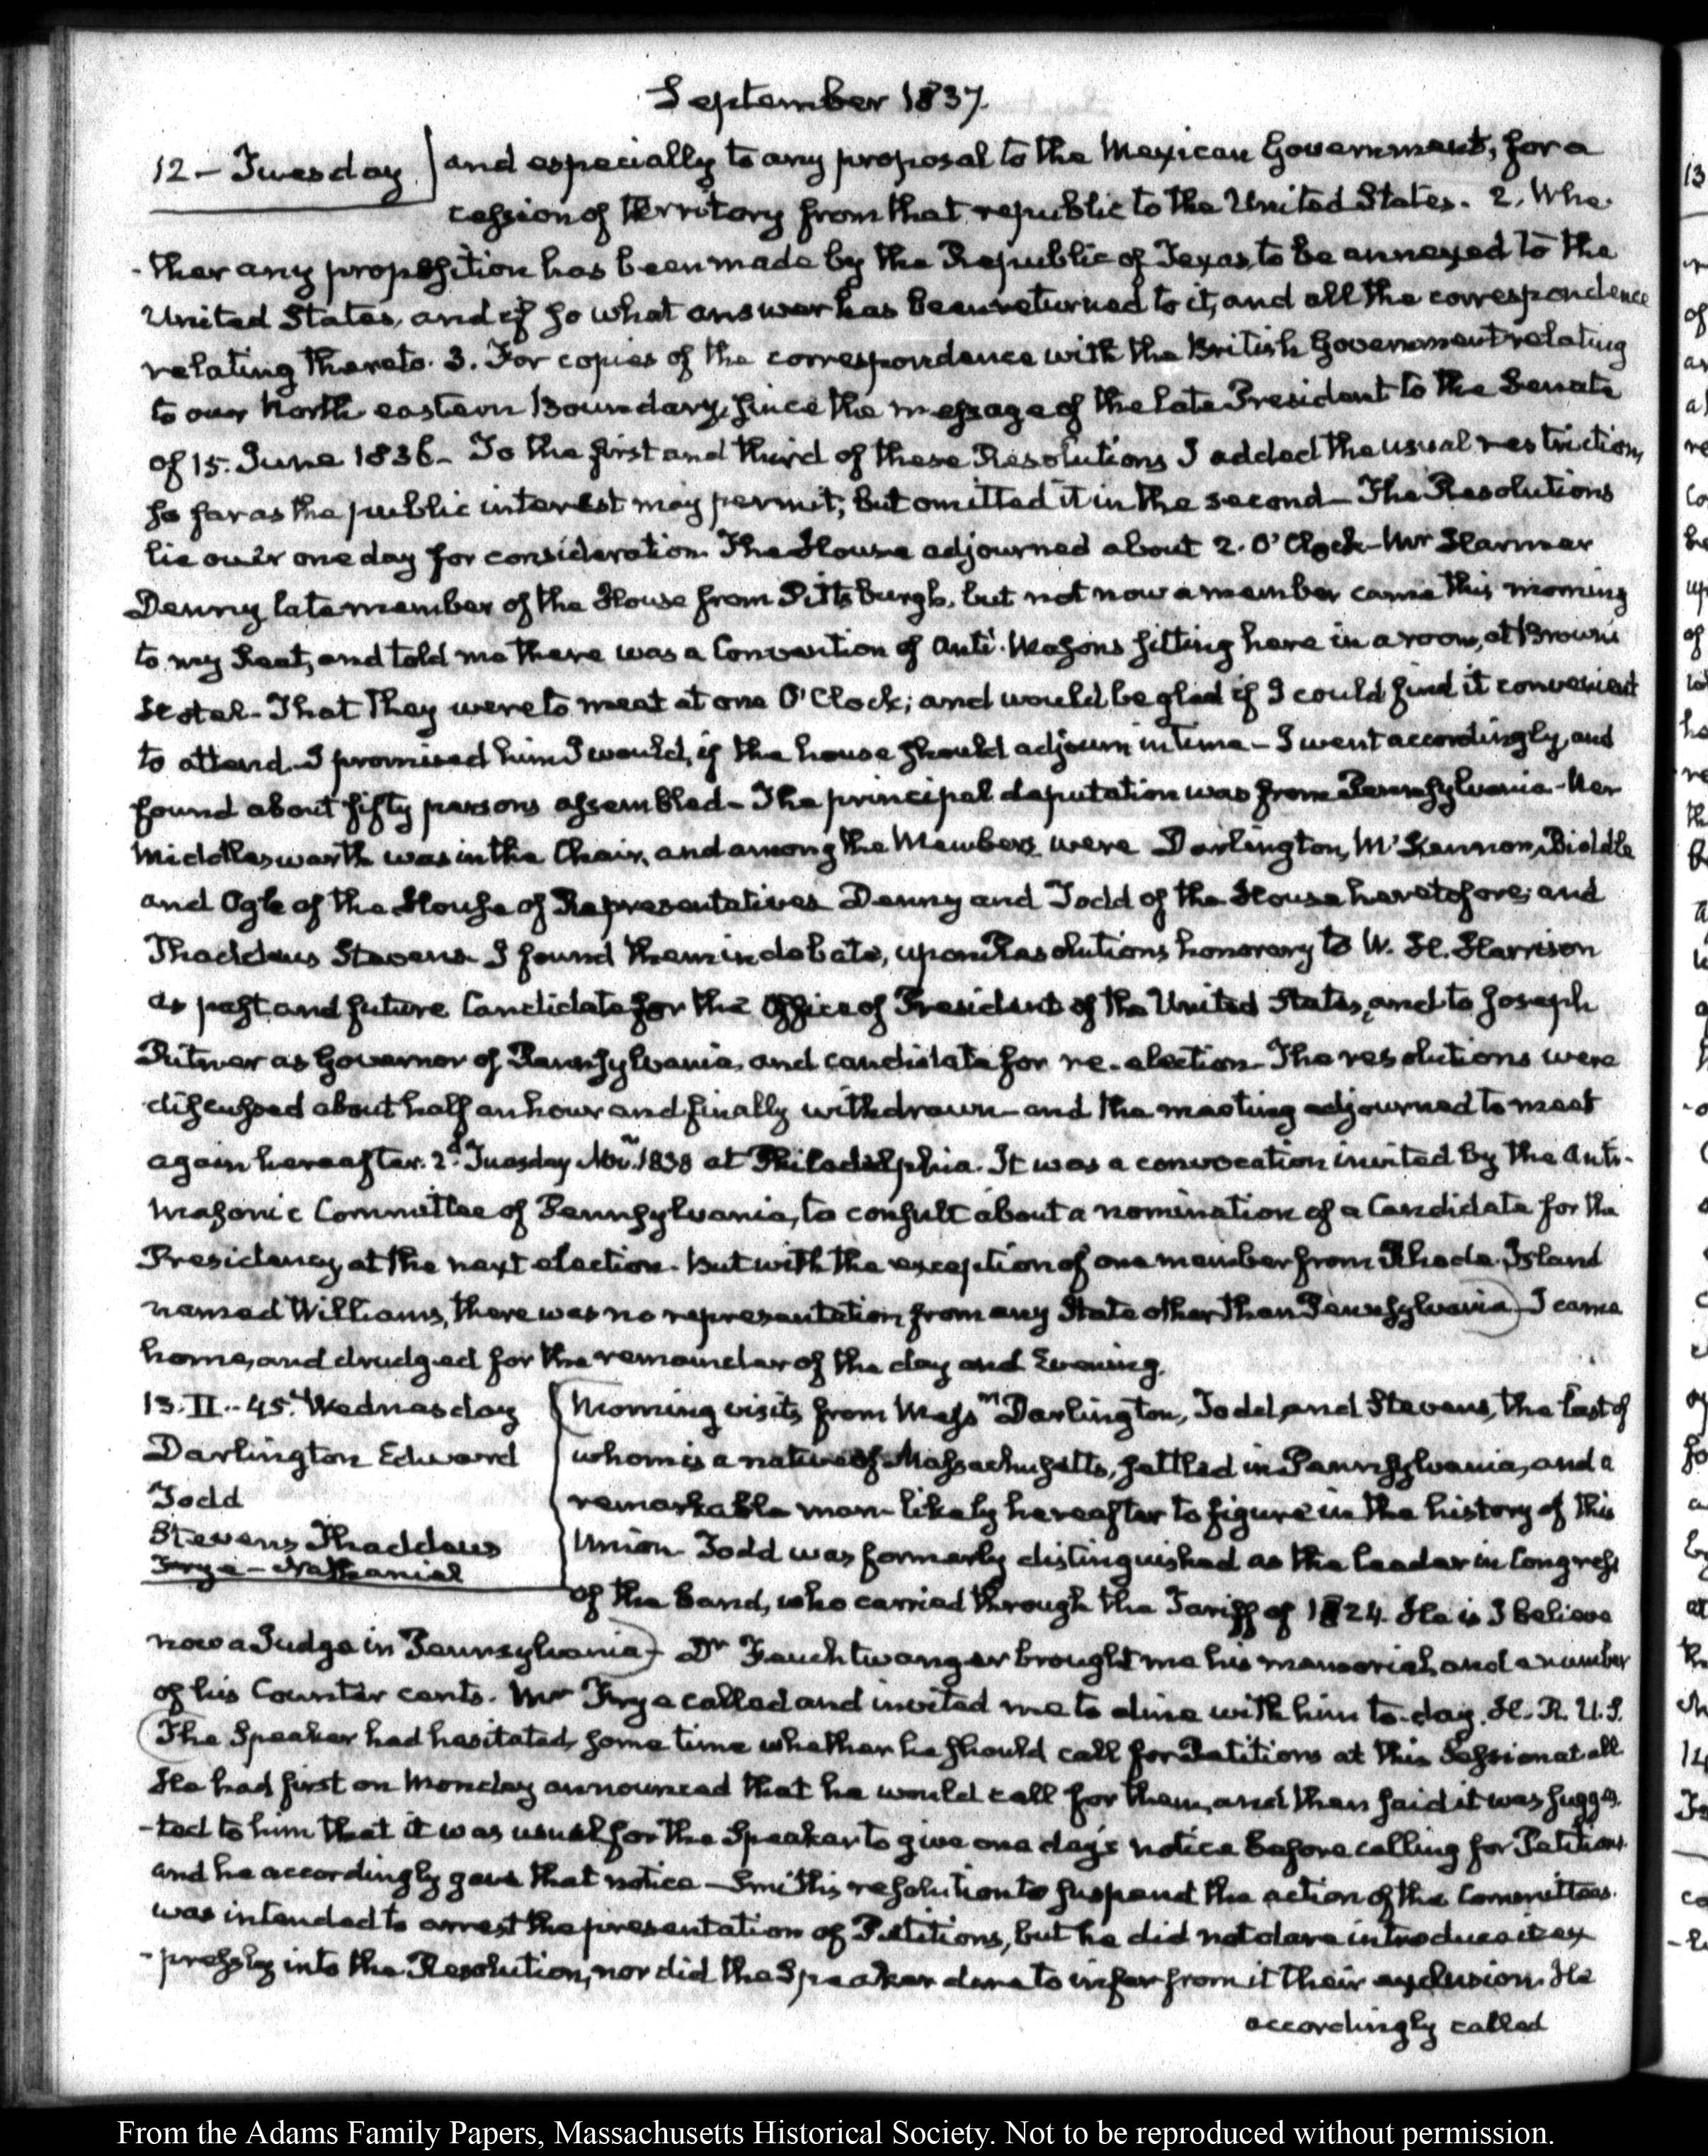 September 1837.
12 – Tuesday. and especially to any proposal to the Mexican Government, for a
cession of Territory from that republic to the United States. 2. Whe-
-ther any proposition has been made by the Republic of Texas, to be annexed to the
United States, and if so what answer has been returned to it, and all the correspondence
relating thereto. 3. For copies of the correspondence with the British Government relating
to our North eastern Boundary, since the message of the late President to the Senate
of 15. June 1836 – To the first and third of these Resolutions I added the usual restriction,
so far as the public interest may permit; but omitted it in the second – The Resolutions
lie over one day for consideration. The House adjourned about 2. O'Clock – Mr Harmar
Denny late member of the House from Pittsburgh, but not now a member came this morning
to my seat, and told me there was a Convention of Anti-Masons sitting here in a room, at Brown's
Hotel – That they were to meet at one O'Clock; and would be glad if I could find it convenient
to attend. I promised him I would, if the house should adjourn in time – I went accordingly, and
found about fifty persons assembled – The principal deputation was from Pennsylvania – Ner
Middleswarth was in the Chair, and among the Members were Darlington, McKennon, Biddle
and Ogle of the House of Representatives Denny and Todd of the House heretofore; and
Thaddeus Stevens. I found them in debate, upon Resolutions honorary to W. H. Harrison
as past and future Candidate for the Office of President of the United States, and to Joseph
Ritner as Governor of Pennsylvania, and candidate for re-election – The resolutions were
discussed about half an hour and finally withdrawn – and the meeting adjourned to meet
again hereafter. 2d. Tuesday Nov. 1838 at Philadelphia. It was a convocation invited by the Anti-
Masonic Committee of Pennsylvania, to consult about a nomination of a Candidate for the
Presidency at the next election. But with the exception of one member from Rhode-Island
named Williams, there was no representation from any State other than Pennsylvania) – I came
home, and drudged for the remainder of the day and Evening.
13. II.. 45. Wednesday
Darlington Edward
Todd
Stevens Thaddeus
Frye – Nathaniel
Morning visits from Messrs Darlington, Todd, and Stevens, the last of
whom is a native of Massachusetts, settled in Pennsylvania, and a
remarkable man likely hereafter to figure in the history of this
Union. Todd was formerly distinguished as the leader in Congress
of the band, who carried through the Tariff of 1824. He is I believe
now a Judge in Pennsylvania) – Dr Feuchtwanger brought me his memorial, and a number
of his Counter cents. Mr Frye called and invited me to dine with him to-day. H. R. U.S.
(The Speaker had hesitated some time whether he should call for Petitions at this Session at all
He had first on Monday announced that he would call for them, and then said it was sugges-
-ted to him that it was usual for the Speaker to give one day's notice before calling for Petitions
and he accordingly gave that notice – Smith's resolution to suspend the action of the Committees
was intended to arrest the presentation of Petitions, but he did not dare introduce it ex
-pressly into the Resolution, nor did the Speaker dare to infer from it their exclusion. He
accordingly called
From the Adams Family Papers, Massachusetts Historical Society. Not to be reproduced without permission.